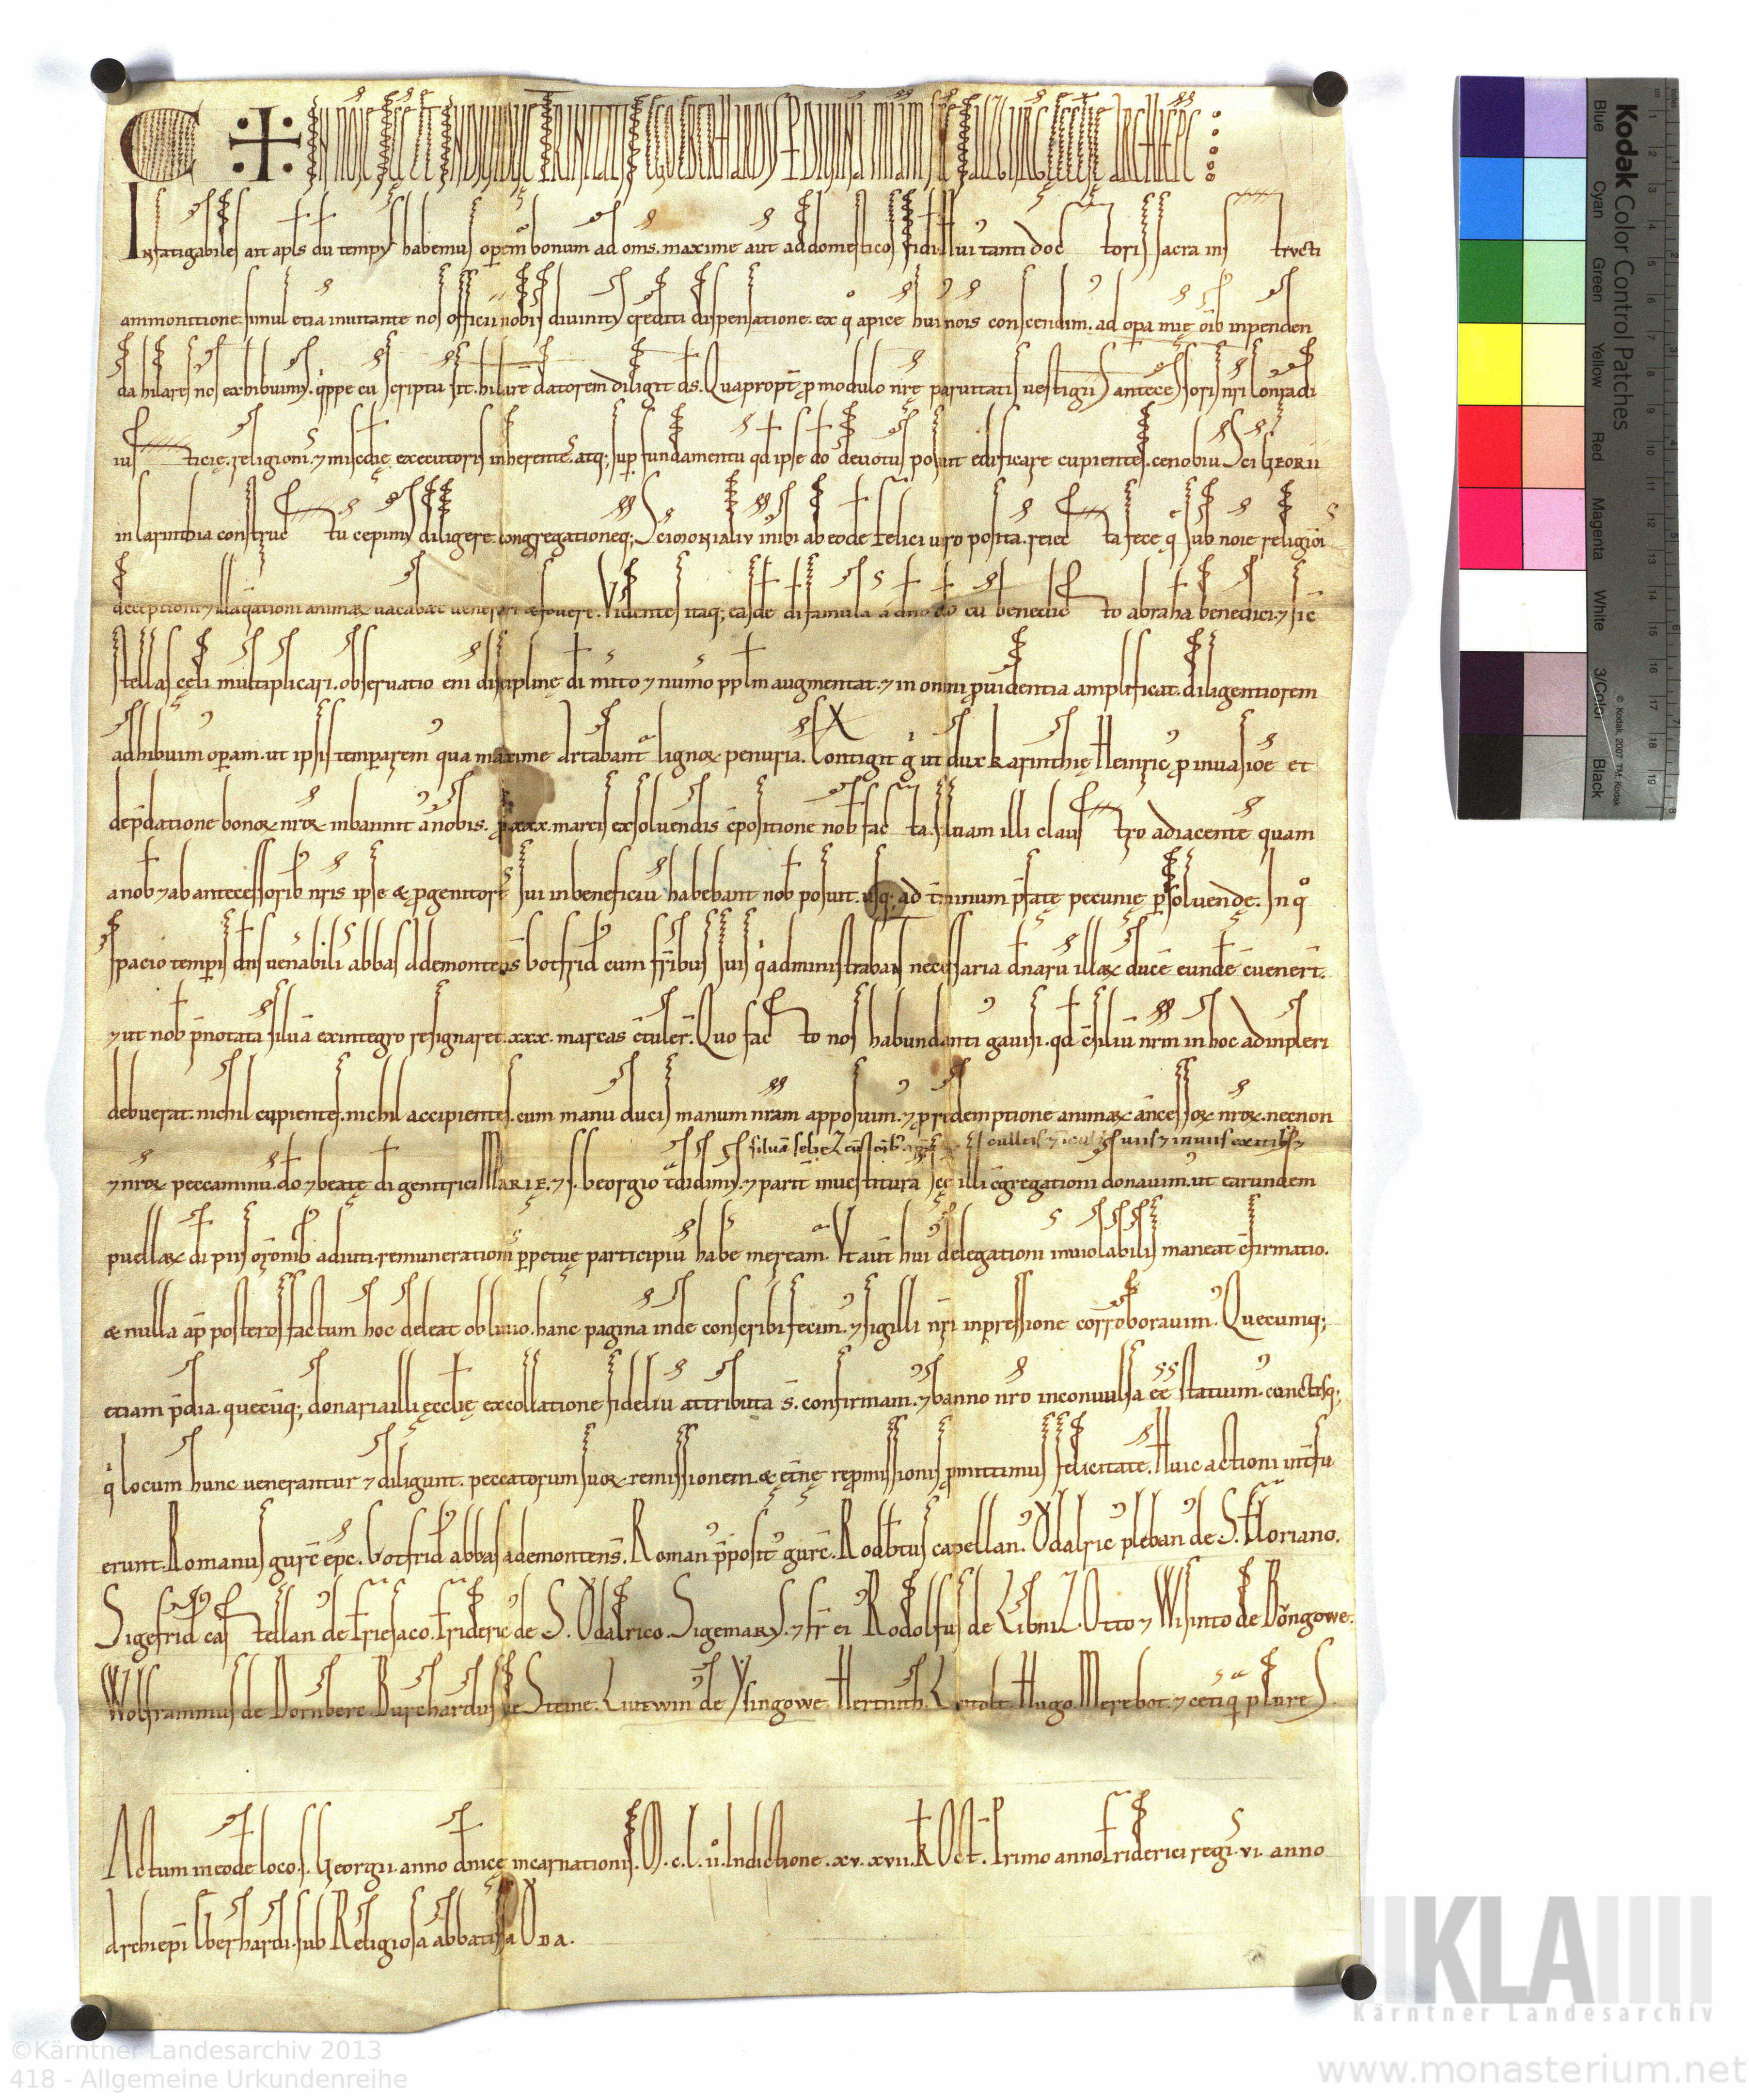 C ✝ IN NOĪE SCĘ ET INDIVIDUĘ TRINITATIS EGO EBERHARDUS DIVINA MIAM SCĘ SALZBURG ECCLĘ ARCHIEPC
Infatigabiles ait apls dū tempus habemus operem bonum ad oms. maxime aut ad domesticos fidei. Hui tanti doctoris sacra instructi
ammonitione. simul etiā inuitante nos officii nobis diuinitus crediti dispensatione. ex q̊ apice hui nois conscendim. ad opa mię oīb inpenden
da hilares nos exhibuimus. quippe cū scriptū sit. hilarē datorem diligit ds. Quapropt p modulo nrę paruitatis uestigiis antecessoris nri Conradi
iusticię. religionis ⁊ miscdię executoris inherentes. atq; sup fundamentū qd ipse do deuotus posuit edificare cupientes. cenobiū Sci GEORII
in Carinthia constructū cepimus diligere. congregationēq; Scimonialiū inibi ab eodē felici uiro posita. reiecta fece q̄ sub noīe religiōi
deceptioni ⁊ illaqationi animaꝝ uacabat uenerari & fouere. Videntes itaq; easdē di famulas a dno do cū benedicto abrahā benedici. ⁊ sic
stellas cęli multiplicari. obseruatio eni disciplinę di mito ⁊ numo pplm augmentat. ⁊ in omni puidentia amplificat. diligentiorem
adhibuim opam. ut ipsis temparem qua maxime artabant lignoꝝ penuria. Contigit g̊ ut dux karinthię Heinric p inuasiōe et
depdatione bonoꝝ nroꝝ inbannit a nobis. p xxx. marcis exsoluendis cpositione nob facta. siluam illi claustro adiacentē quam
a nob ⁊ ab antecessorib nris ipse & pgenitores sui in beneficiū habebant nob posuit. usq; ad tminum pfatę pecunię psoluendę. In q̊
spacio tempis dns uenabilis abbas Ademontens Gotfrid cum fribus suis q administrabant necessaria dnarū illaꝝ ducē eundē cuenert.
⁊ ut nob pnotata siluā ex integro resignaret. xxx. marcas ctuler. Quo facto nos habundanti gauisi. qd csiliū nrm in hoc adinpleri
debuerat. nichil cupientes. nichil accipientes. cum manu ducis manum nram apposuim. ⁊ p redemptione animaꝝ ancessoꝝ nroꝝ. necnon
siluā cultis ⁊ icultis uiis ⁊ inuiis exitib; ⁊
⁊ nroꝝ peccaminū. do ⁊ beatę di genitrici MARIĘ. ⁊ s. Georgio tdidimus. ⁊ parit inuestiturā scę illi cgregationi donauim. ut earundem
puellaꝝ di piis oronib adiuti. remunerationis ppetuę participiū habē meream. Vt aut hui delegationis inuiolabilis maneat cfirmatio.
& nulla ap posteros factum hoc deleat obliuio. hanc paginā inde conscribi fecim. ⁊ sigilli nri inpressione corroborauim. Quecumq;
etiam pdia. quecūq; donaria illi ęcclię ex collatione fideliū attributa s. confirmam. ⁊ banno nro inconuulsa eē statuim. cunctisq;
q̇ locum hunc uenerantur ⁊ diligunt. peccatorum suoꝝ remissionem. & etnę repmissionis pmittimus felicitatē. Huic actioni intfu
erunt. Romanus gurc epc. Gotfrid abbas ademontens. Roman pposit gurc. Rodbtus capellan. Ŏdalric pleban de S. Floriano.
Sigefrid castellan de Friesaco. Frideric de S. Ŏdalrico. Sigemarus. ⁊ fr ei Rodolfus de LibniZ. Otto ⁊ Wisinto de Pŏngowe.
Wolframmus de Dornberc. Burchardus de Steine. Liutwin de Ysingowe. Hertnith. Liutolt. Hugo. Merebot. ⁊ ceti q plures.
Actum in eodē loco. S. Georgii. anno dnicę incarnationis. M. c. l. ii. Indictione. xv. xvii. k. Oct. Primo anno Friderici regis. vi. anno
Archiepi Eberhardi. sub Religiosa abbatissa ODA.
Kodak Color Control Patches
Blue Cyan Green Yellow Red Magenta White 3/Color Black
© Kodak, 2007 TM: Kodak
KLA
Kärntner Landesarchiv
©Kärntner Landesarchiv 2013
418 - Allgemeine Urkundenreihe
www.monasterium.net